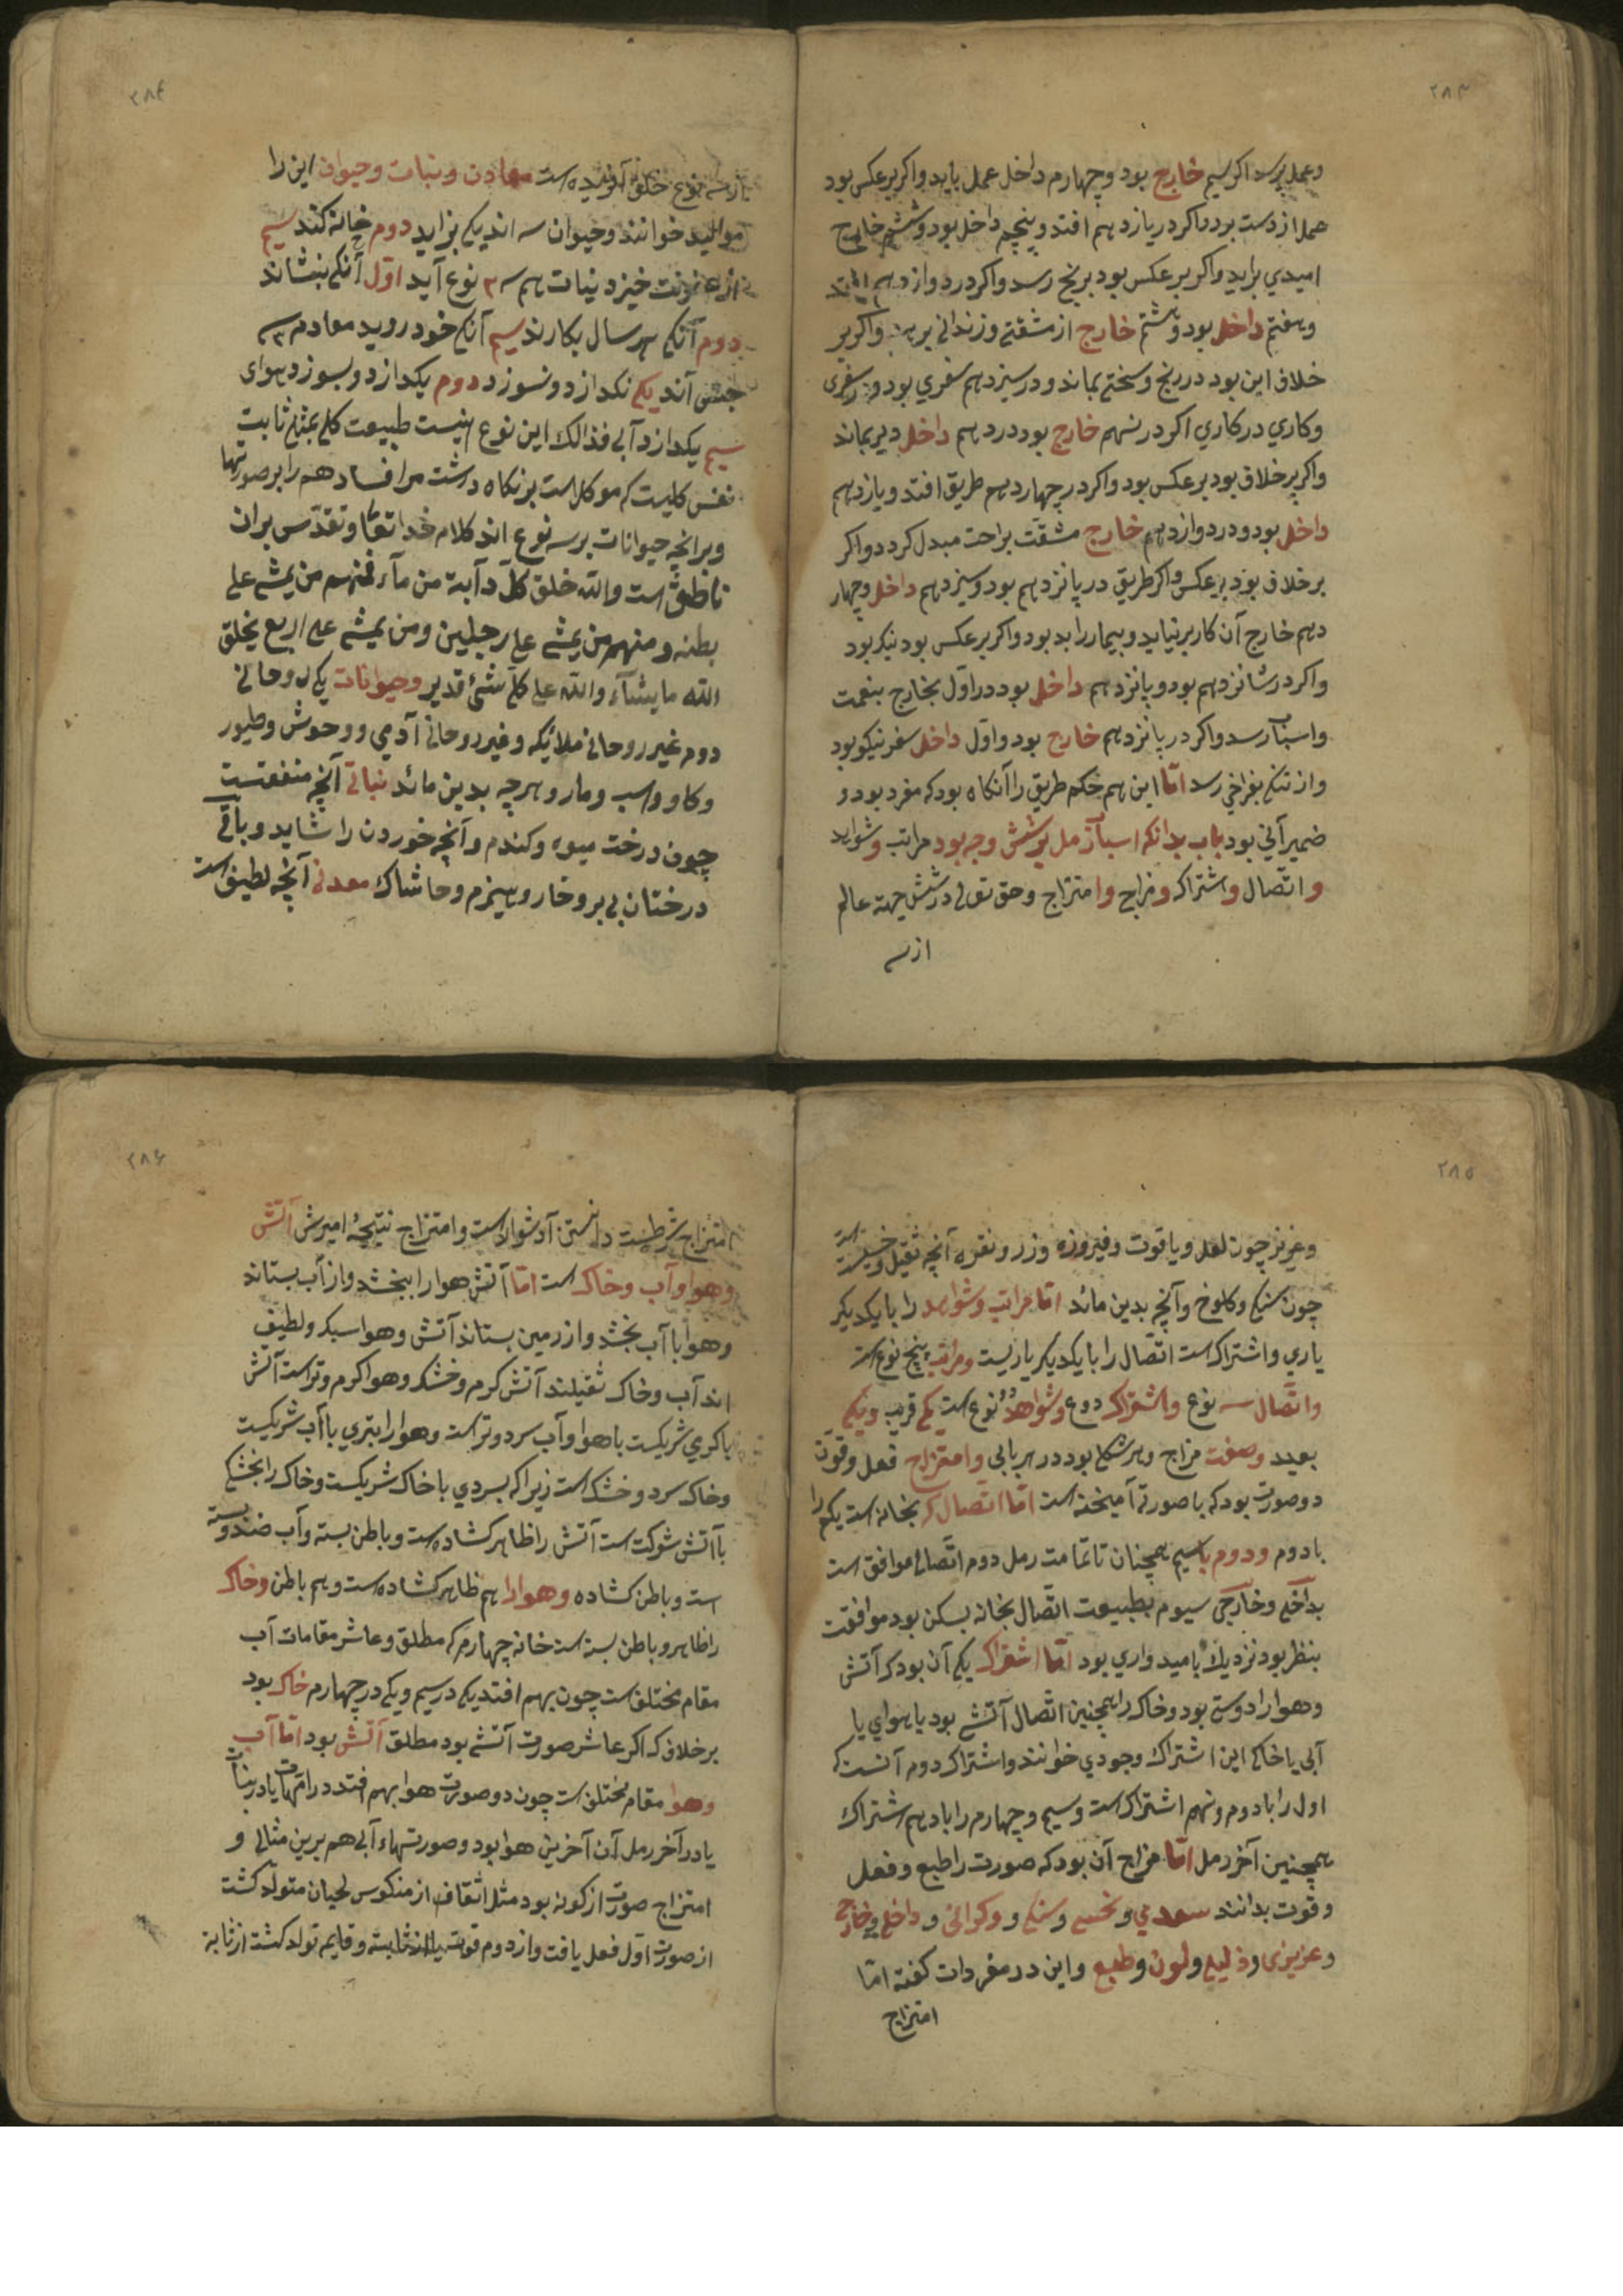 ۲۸۳
وعمل پرسد اکر سیم خارج بود وچهارم داخل عمل یابد واکر برعکس بود
عمل از دست برود واکر در یازدهم افتد وپنجم داخل بود وششم خارج
امیدي براید واکر برعکس بود برنج رسد واکر در دوازدهم افتد
وهفتم داخل بود وهشتم خارج از مشقتی وزندانی برهد واکر بر
خلاف این بود در رنج وسختی بماند ودر سیزدهم سفري بود وز سفری
وکاري در کاري اکر در نسهم خارج بود در دهم داخل دیر بماند
واکر بر خلاف بود برعکس بود واکر در چهاردهم طریق افتد ویازدهم
داخل بود ودر دوازدهم خارج مشقت براحت مبدل کردد واکر
برخلاف بود برعکس واکر طریق در پانزدهم بود وسیزدهم داخل وچهار
دهم خارج آن کار برنیاید وبیمار را بد بود واکر برعکس بود نیک بود
واکر در شانزدهم بود وپانزدهم داخل بود در اول بخارج بنعمت
واسباب رسد واکر در پانزدهم خارج بود واول داخل سفر نیکو بود
واز تنکی بفراخي رسد امّا این هم حکم طریق را آنکاه بود که مفرد بود و
ضمیر آني بود باب بدانکه اسباّز مل بر شش وجه بود مراتب وشواهد
و اتّصال واشتراک ومزاج وامتزاج وحق تعالی در شش جهت عالم
از سه
۲۸۴
از سه نوع خلق آفریده است معادن ونبات وحیوان این را
موالید خوانند وحیوان سه اند یکی بزاید دوم خانه کند سیم
از عفونت خیزد نبات هم سه ۳ نوع آید اوّل آنکه بنشاند
دوم آنکه هر سال بکارند سیم آنکه خود روید معادم سه
جنس آند یکی نکدازد ونسوزد دوم بکدازد وبسوزد هوای
سیم بکدازد آبی فذالک این نوع نیست طبیعت کلی بمثابه ثابت
نفس کلیست که موکل است برنکاه درشت مر افساد هم را بر صورتها
وبرانچه حیوانات بر سه نوع اند کلام خدا تعالی وتقدّس بران
ناطق است والله خلق کلّ دآبة من مآء فمنهم من یمشی علی
بطنه ومنهم من یمشی علی رجلین ومن یمشی علی اربع یخلق
الله ما یشآء والله علی کلّ شئ قدیر وحیوانات یکی روحانی
دوم غیر روحانی ملائیکه وغیر روحانی آدمي ووحوش وطیور
وکاو واسب ومار وهرچه بدین ماند نباتی آنچه منفعتست
چون درخت میوه وکندم وآنچه خوردن را شاید وباقی
درختان بی بر وخار وهیزم وخاشاک معدنی آنچه لطیف است
۲۸۵
وعزیز چون لعل ویاقوت وفیروزه وزر ونقره آنچه ثقیل وخسیس است
چون سنک وکلوخ وآنچه بدین ماند امّا مراتب وشواهد را با یکدیکر
یاري واشتراک است اتّصال را با یکدیکر یاریست ومراتب پنج نوع است
واتّصال سه نوع واشتراک دو ع وشواهد دو نوع است یکی قریب ویکی
بعید وصفت مزاج وهر شکلی بود در هر بابی وامتزاج فعل وقوّت
دو صورت بود که با صورتی آمیخته است امّا اتّصال که بخانه است یکی را
با دوم ودوم با سیم همچنان تا تمامت رمل دوم اتّصالی موافق است
بداخلی وخارجی سیوم بطبیعت اتّصال بخانه بسکن بود موافقت
بنظر بود نزدیک بامیدواري بود امّا اشتراک یکی آن بود که آتش
وهوا را دوستی بود وخاک را همچنین اتّصال آتشی بود یا هوای یا
آبی یا خاکی این اشتراک وجودي خوانند واشتراک دوم آنست که
اول را با دوم ونهم اشتراک است وسیم وچهارم را با دهم اشتراک
همچنین آخر رمل امّا مزاج آن بود که صورت را طبع وفعل
وقوت بدانند سعدي ونحسی وسنکی ووکرانی وداخلی وخارج
وعزیزی وذلیلی ولون وطبع واین در مفردات کفته امّا
امتزاج
۲۸۶
امتزاج شرطست دانستن آدشوار است وامتزاج نتیجهٔ امیزش آتش
وهوا وآب وخاک است امّا آتش هوا را ببخشد واز آب بستاند
وهوا با آب بخشد واز زمین بستاند آتش وهوا سبک ولطیف
اند آب وخاک ثقیلند آتش کرم وخشک وهوا کرم وتر است آتش
با کرمي شریکست با هوا وآب سرد وتر است وهوا را بتري با آب شریکیست
وخاک سرد وخشک است زیرا که بسردي با خاک شریکست وخاک را بخشکی
با آتش شوکت است آتش را ظاهر کشاده است وباطن بسته وآب ضد او بسته
است وباطن کشاده وهوا را هم ظاهر کشاده است وهم باطن وخاک
را ظاهر وباطن بسته است خانه چهارم که مطلق وعاشر مقامات آب
مقام مختلف است چون بهم افتد یکی در سیم ویکی در چهارم خاک بود
برخلاف که اکر عاشر صورت آتشی بود مطلق آتش بود امّا آب
وهوا مقام مختلف است چون دو صورت هوا بهم افتد در امّهات یا در بنات
یا در آخر رمل آن آخرین هوا بود وصورتهاء آبی هم برین مثالی و
امتزاج صورت از کونه بود مثل اثقاف از منکوس لحیان متولّد کشت
از صورت اوّل فعل یافت واز دوم قوت یا از ثابته وقایم تولد کشت از ثابة